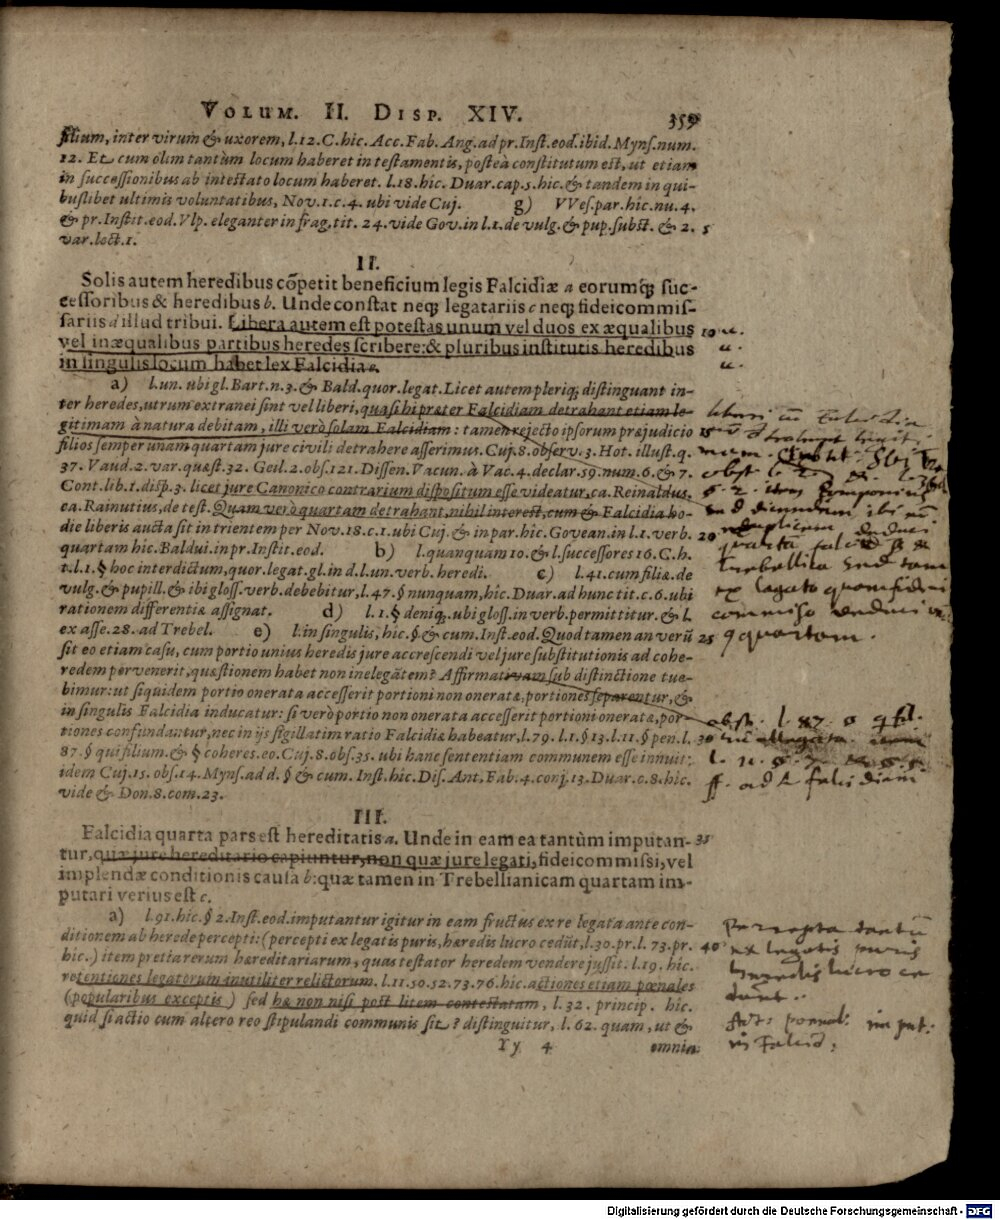 VOLUM. II. DISP. XIV. 359
filium, inter virum & uxorem, l. 12. C. hic. Acc. Fab. Ang. ad pr. Inst. eod. ibid. Myns. num.
12. Et cum olim tantùm locum haberet in testamentis, posteà constitutum est, ut etiam
in successionibus ab intestato locum haberet. l. 18. hic. Duar. cap. 5. hic. & tandem in qui-
buslibet ultimis voluntatibus, Nov. 1. c. 4. ubi vide Cuj. g) VVes. par. hic. nu. 4.
& pr. Instit. eod. Vlp. eleganter in frag. tit. 24. vide Gov. in l. 1. de vulg. & pup. subst. & 2. 5
var. lect. 1.
II.
Solis autem heredibus cõpetit beneficium legis Falcidiæ a eorumq; suc-
cessoribus & heredibus b. Unde constat neq; legatariis c neq; fideicommis-
sariis d illud tribui. Libera autem est potestas unum vel duos ex æqualibus 10
vel inæqualibus partibus heredes scribere: & pluribus institutis heredibus
in singulis locum habet lex Falcidia e.
a) l. un. ubi gl. Bart. n. 3. & Bald. quor. legat. Licet autem pleriq; distinguant in-
ter heredes, utrum extranei sint vel liberi, quasi hi præter Falcidiam detrahant etiam le-
gitimam à natura debitam, illi verò solam Falcidiam: tamen rejecto ipsorum præjudicio 15
filios semper unam quartam jure civili detrahere asserimus. Cuj. 8. observ. 3. Hot. illust. q.
37. Vaud. 2. var. quæst. 32. Geil. 2. obs. 121. Dissen. Vacun. à Vac. 4. declar. 59. num. 6. & 7.
Cont. lib. 1. disp. 3. licet jure Canonico contrarium dispositum esse videatur, ca. Reinaldus.
ca. Rainutius, de test. Quam verò quartam detrahant, nihil interest, cum & Falcidia ho-
die liberis aucta sit in trientem per Nov. 18. c. 1. ubi Cuj. & in par. hic. Govean. in l. 1. verb. 20
quartam hic. Baldui. in pr. Instit. eod. b) l. quanquam 10. & l. successores 16. C. h.
t. l. 1. § hoc interdictum, quor. legat. gl. in d. l. un. verb. heredi. c) l. 41. cum filiæ. de
vulg. & pupill. & ibi gloss. verb. debebitur, l. 47. § nunquam, hic. Duar. ad hunc tit. c. 6. ubi
rationem differentiæ assignat. d) l. 1. § deniq. ubi gloss. in verb. permittitur. & l.
ex asse. 28. ad Trebel. e) l. in singulis, hic. § & cum. Inst. eod. Quod tamen an verũ 25
sit eo etiam casu, cum portio unius heredis jure accrescendi vel jure substitutionis ad cohe-
redem pervenerit, quæstionem habet non inelegātem? Affirmativam sub distinctione tue-
bimur: ut siquidem portio onerata accesserit portioni non oneratæ, portiones separentur, &
in singulis Falcidia inducatur: si verò portio non onerata accesserit portioni oneratæ, por-
tiones confundantur, nec in ijs sigillatim ratio Falcidiæ habeatur, l. 79. l. 1. § 13. l. 11. § pen. l. 30
87. § qui filium. & § coheres. eo. Cuj. 8. obs. 35. ubi hanc sententiam communem esse innuit:
idem Cuj. 15. obs. 14. Myns. ad d. § & cum. Inst. hic. Dis. Ant. Fab. 4. conj. 13. Duar. c. 8. hic.
vide & Don. 8. com. 23.
III.
Falcidia quarta pars est hereditatis a. Unde in eam ea tantùm imputan- 35
tur, quæ jure hereditario capiuntur, non quæ jure legati, fideicommissi, vel
implendæ conditionis causa b: quæ tamen in Trebellianicam quartam im-
putari verius est c.
a) l. 91. hic. § 2. Inst. eod. imputantur igitur in eam fructus ex re legata ante con-
ditionem ab herede percepti: (percepti ex legatis puris, hæredis lucro cedũt, l. 30. pr. l. 73. pr. 40
hic.) item pretia rerum hæreditariarum, quas testator heredem vendere jussit. l. 19. hic.
retentiones legatorum inutiliter relictorum. l. 11. 50. 52. 73. 76. hic. actiones etiam pœnales
(popularibus exceptis) sed hæ non nisi post litem contestatam, l. 32. princip. hic.
quid si actio cum altero reo stipulandi communis sit? distinguitur, l. 62. quam, ut &
Yy 4 omnia
ex legato
commisso
quartam.
obst. l. 87. §
ff. ad l. falcidiam
percepta tantũ
ex legatis puris
hæredis lucro ce
dunt.
imput.
in Falcid.
Digitalisierung gefördert durch die Deutsche Forschungsgemeinschaft - DFG